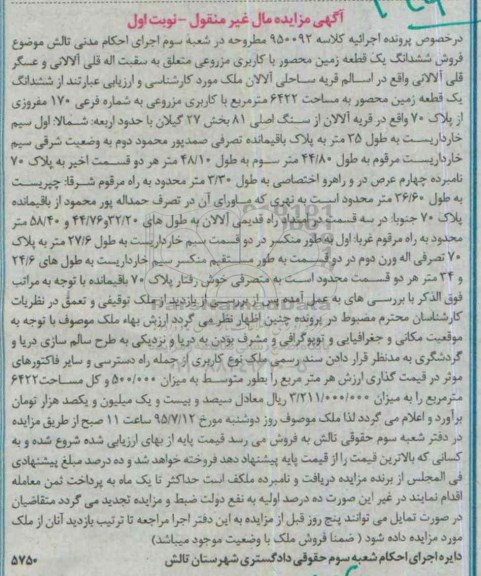 آگهی مزایده مال غیر منقول - نوبت اول
درخصوص پرونده اجرائیه کلاسه ۹۵۰۰۹۲ مطروحه در شعبه سوم اجرای احکام مدنی تالش موضوع
فروش ششدانگ یک قطعه زمین محصور با کاربری مزروعی متعلق به سقبت اله قلی آلالانی و عسگر
قلی آلالانی واقع در اسالم قریه ساحلی آلالان ملک مورد کارشناسی و ارزیابی عبارتند از ششدانگ
یک قطعه زمین محصور به مساحت ۶۴۲۲ مترمربع با کاربری مزروعی به شماره فرعی ۱۷۰ مفروزی
از پلاک ۷۰ واقع در قریه آلالان از سنگ اصلی ۸۱ بخش ۲۷ گیلان با حدود اربعه: شمالا: اول سیم
خارداریست به طول ۳۵ متر به پلاک باقیمانده تصرفی صمدپور محمود دوم به وضعیت شرقی سیم
خارداریست مرقوم به طول ۴۴/۸۰ متر سوم به طول ۴۸/۱۰ متر هر دو قسمت اخیر به پلاک ۷۰
نامبرده چهارم عرض در و راهرو اختصاصی به طول ۳/۳۰ متر محدود به راه مرقوم شرقا: چپریست
به طول ۳۶/۶۰ متر محدود است به نهری که ماورای آن در تصرف حمداله پور محمود از باقیمانده
پلاک ۷۰ جنوبا: در سه قسمت بر امتداد راه قدیمی آلالان به طول های ۳۲/۲۰و۴۴/۷۶ و ۵۸/۴۰ متر
محدود به راه مرقوم غربا: اول به طور منکسر در دو قسمت سیم خارداریست به طول ۲۷/۶ متر به پلاک
۷۰ تصرفی اله ورن دوم در دو قسمت به طور مستقیم منکسر سیم خارداریست به طول های ۲۴/۶
و ۳۴ متر هر دو قسمت محدود است به متصرفی خوش رفتار پلاک ۷۰ باقیمانده با توجه به مراتب
فوق الذکر با بررسی های به عمل آمده پس از بررسی از بازدید از ملک توقیفی و تعمق در نظریات
کارشناسان محترم مضبوط در پرونده چنین اظهار نظر می گردد ارزش بهاء ملک موصوف با توجه به
موقعیت مکانی و جغرافیایی و توپوگرافی و مشرف بودن به دریا و نزدیکی به طرح سالم سازی دریا و
گردشگری به مدنظر قرار دادن سند رسمی ملک نوع کاربری از جمله راه دسترسی و سایر فاکتورهای
موثر در قیمت گذاری ارزش هر متر مربع را بطور متوسط به میزان ۵۰۰/۰۰۰ و کل مساحت۶۴۲۲
مترمربع را به میزان ۳/۲۱۱/۰۰۰/۰۰۰ ریال معادل سیصد و بیست و یک میلیون و یکصد هزار تومان
برآورد و اعلام می گردد لذا ملک موصوف روز دوشنبه مورخ ۹۵/۷/۱۲ ساعت ۱۱ صبح از طریق مزایده
در دفتر شعبه سوم حقوقی تالش به فروش می رسد قیمت پایه از بهای ارزیابی شده شروع شده و به
کسانی که بالاترین قیمت را از قیمت پایه پیشنهاد دهد فروخته خواهد شد و ده درصد مبلغ پیشنهادی
فی المجلس از برنده مزایده دریافت و نامبرده ملکف است حداکثر تا یک ماه به پرداخت ثمن معامله
اقدام نمایند در غیر این صورت ده درصد اولیه به نفع دولت ضبط و مزایده تجدید می گردد متقاضیان
در صورت تمایل می توانند پنج روز قبل از مزایده به این دفتر اجرا مراجعه تا ترتیب بازدید آنان از ملک
مورد مزایده داده شود ( ضمنا فروش ملک با وضعیت موجود میباشد)
دایره اجرای احکام شعبه سوم حقوقی دادگستری شهرستان تالش ۵۷۵۰